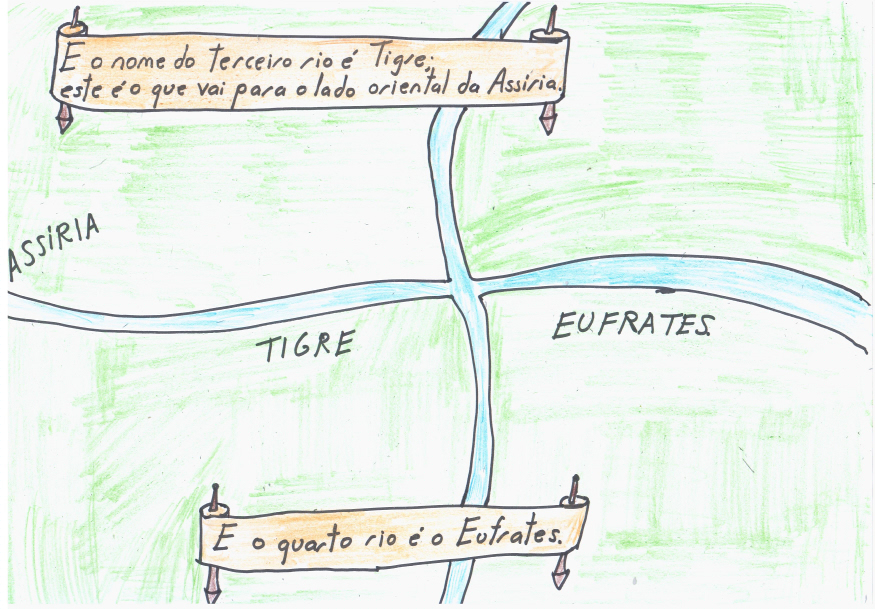 E o nome do terceiro rio é Tigre;
este é o que vai para o lado oriental da Assíria.
ASSÍRIA
TIGRE
EUFRATES.
E o quarto rio é o Eufrates.